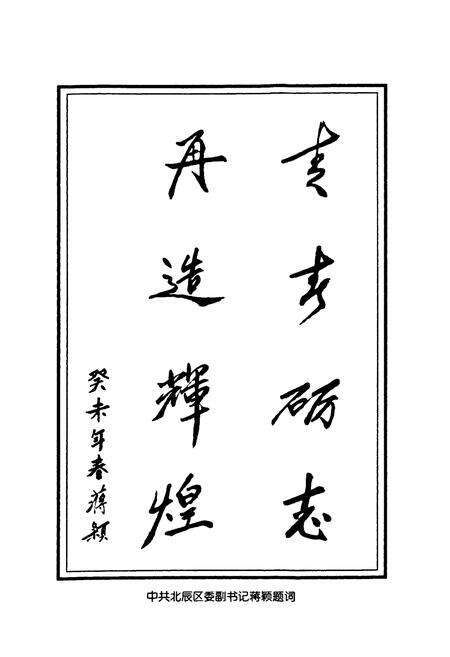 青春砺志
再造輝煌
癸未年春蒋颖
中共北辰区委副书记蒋颖题词